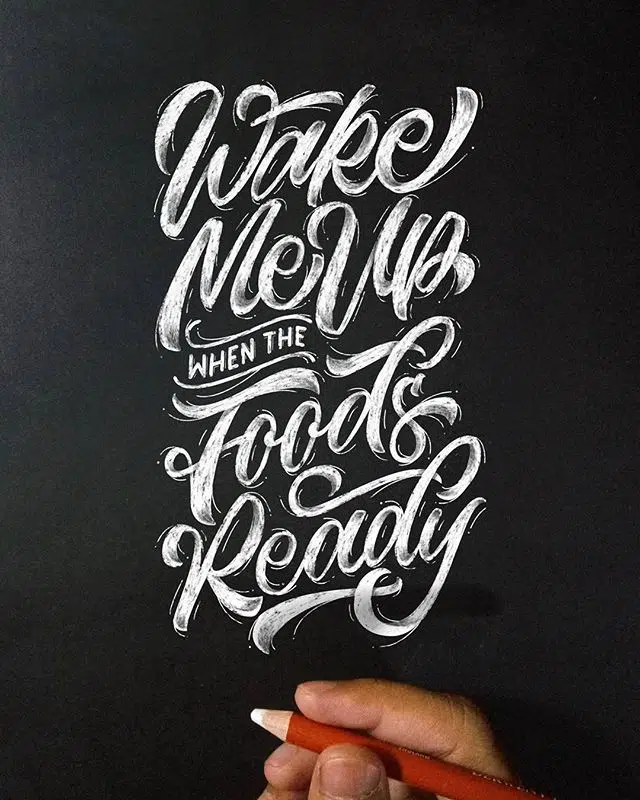 Wake
Me Up
WHEN THE
Foods
Ready